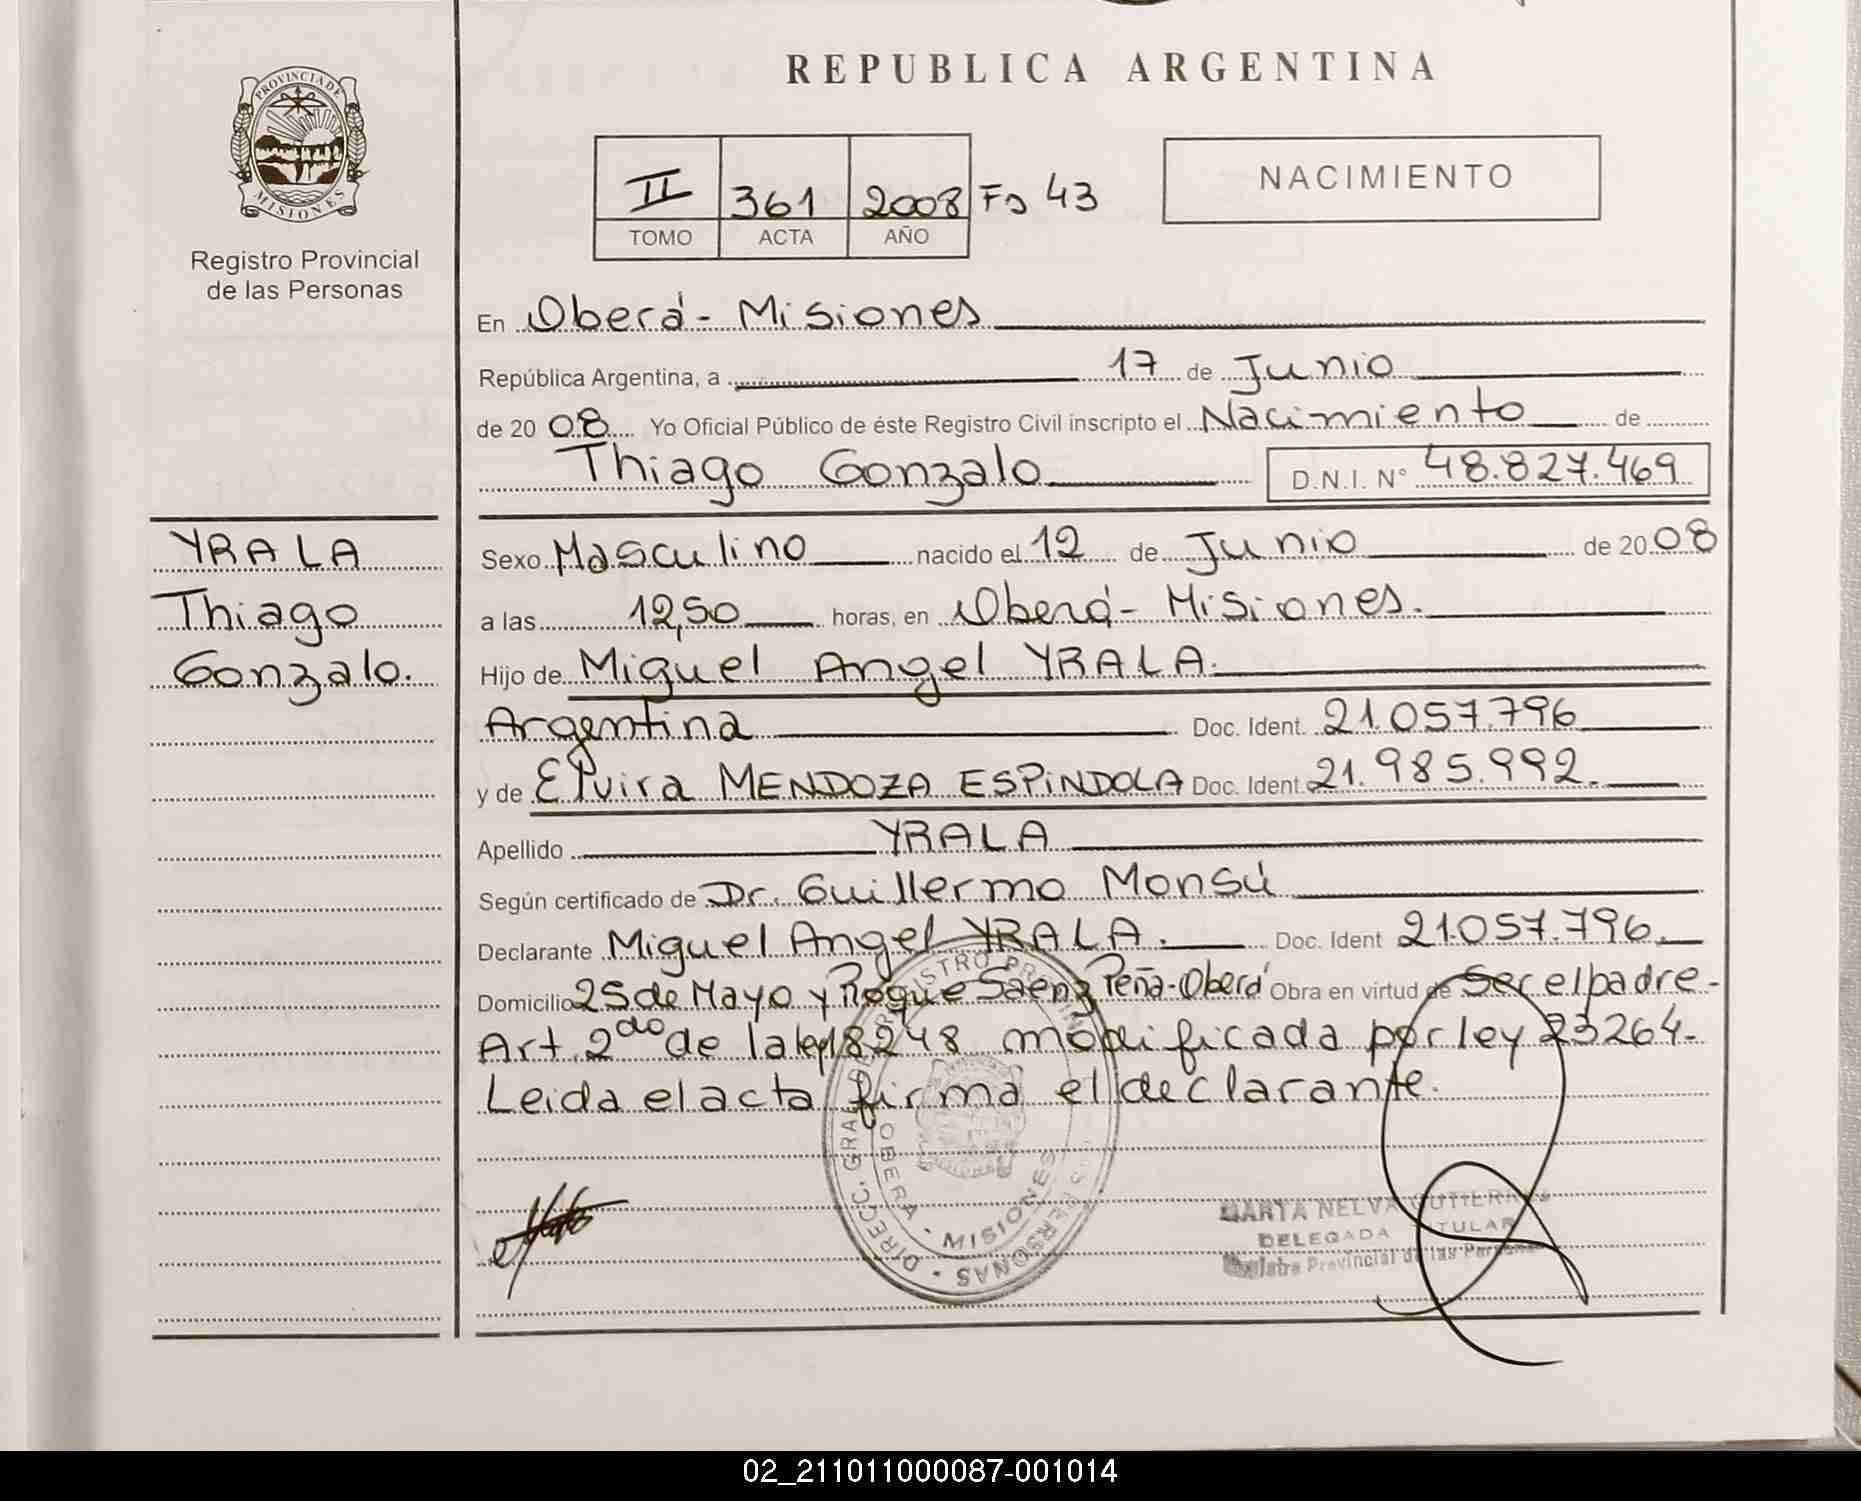 PROVINCIA DE
MISIONES
Registro Provincial
de las Personas
REPUBLICA ARGENTINA
II 361 2008 Fo 43
TOMO ACTA AÑO
NACIMIENTO
En Oberá - Misiones
República Argentina, a 17 de Junio
de 20 08 Yo Oficial Público de éste Registro Civil inscripto el Nacimiento de
Thiago Gonzalo D.N.I. N° 48.827.469
YRALA
Thiago
Gonzalo.
Sexo Masculino nacido el 12 de Junio de 20 08
a las 12,50 horas, en Oberá - Misiones.
Hijo de Miguel Angel YRALA.
Argentina Doc. Ident. 21.057.796
y de Elvira MENDOZA ESPINDOLA Doc. Ident. 21.985.992.
Apellido YRALA
Según certificado de Dr. Guillermo Monsú
Declarante Miguel Angel YRALA. Doc. Ident 21.057.796.
Domicilio 25 de Mayo y Roque Saenz Peña - Oberá Obra en virtud de Ser el padre -
Art. 2do de la ley 18248 modificada por ley 23264 -
Leida el acta firma el declarante.
DIRECC. GRAL. REGISTRO PROVINCIAL PERSONAS
OBERA - MISIONES
MARTA NELVA GUTIERREZ
DELEGADA TITULAR
Registro Provincial de las Personas
02_211011000087-001014